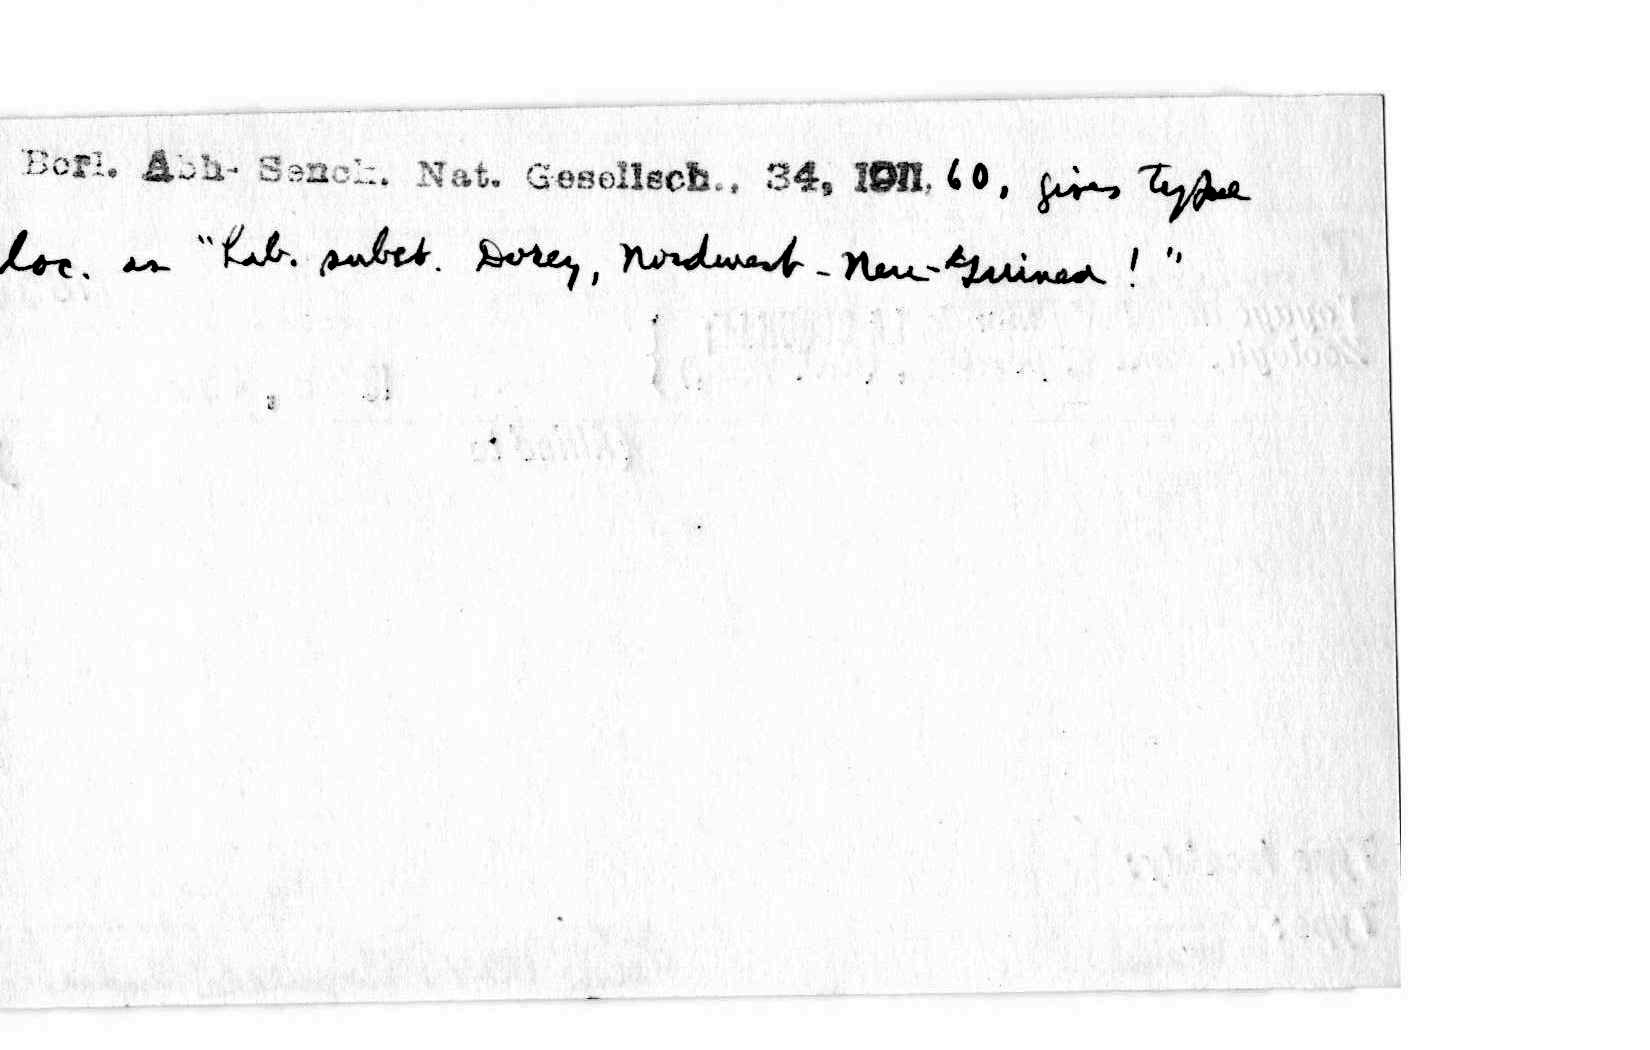 Berl. Abh- Senck. Nat. Gesellsch., 34, 1911, 60, gives type
loc. as "Hab. subst. Dorey, Nordwest-Neu-Guinea!"